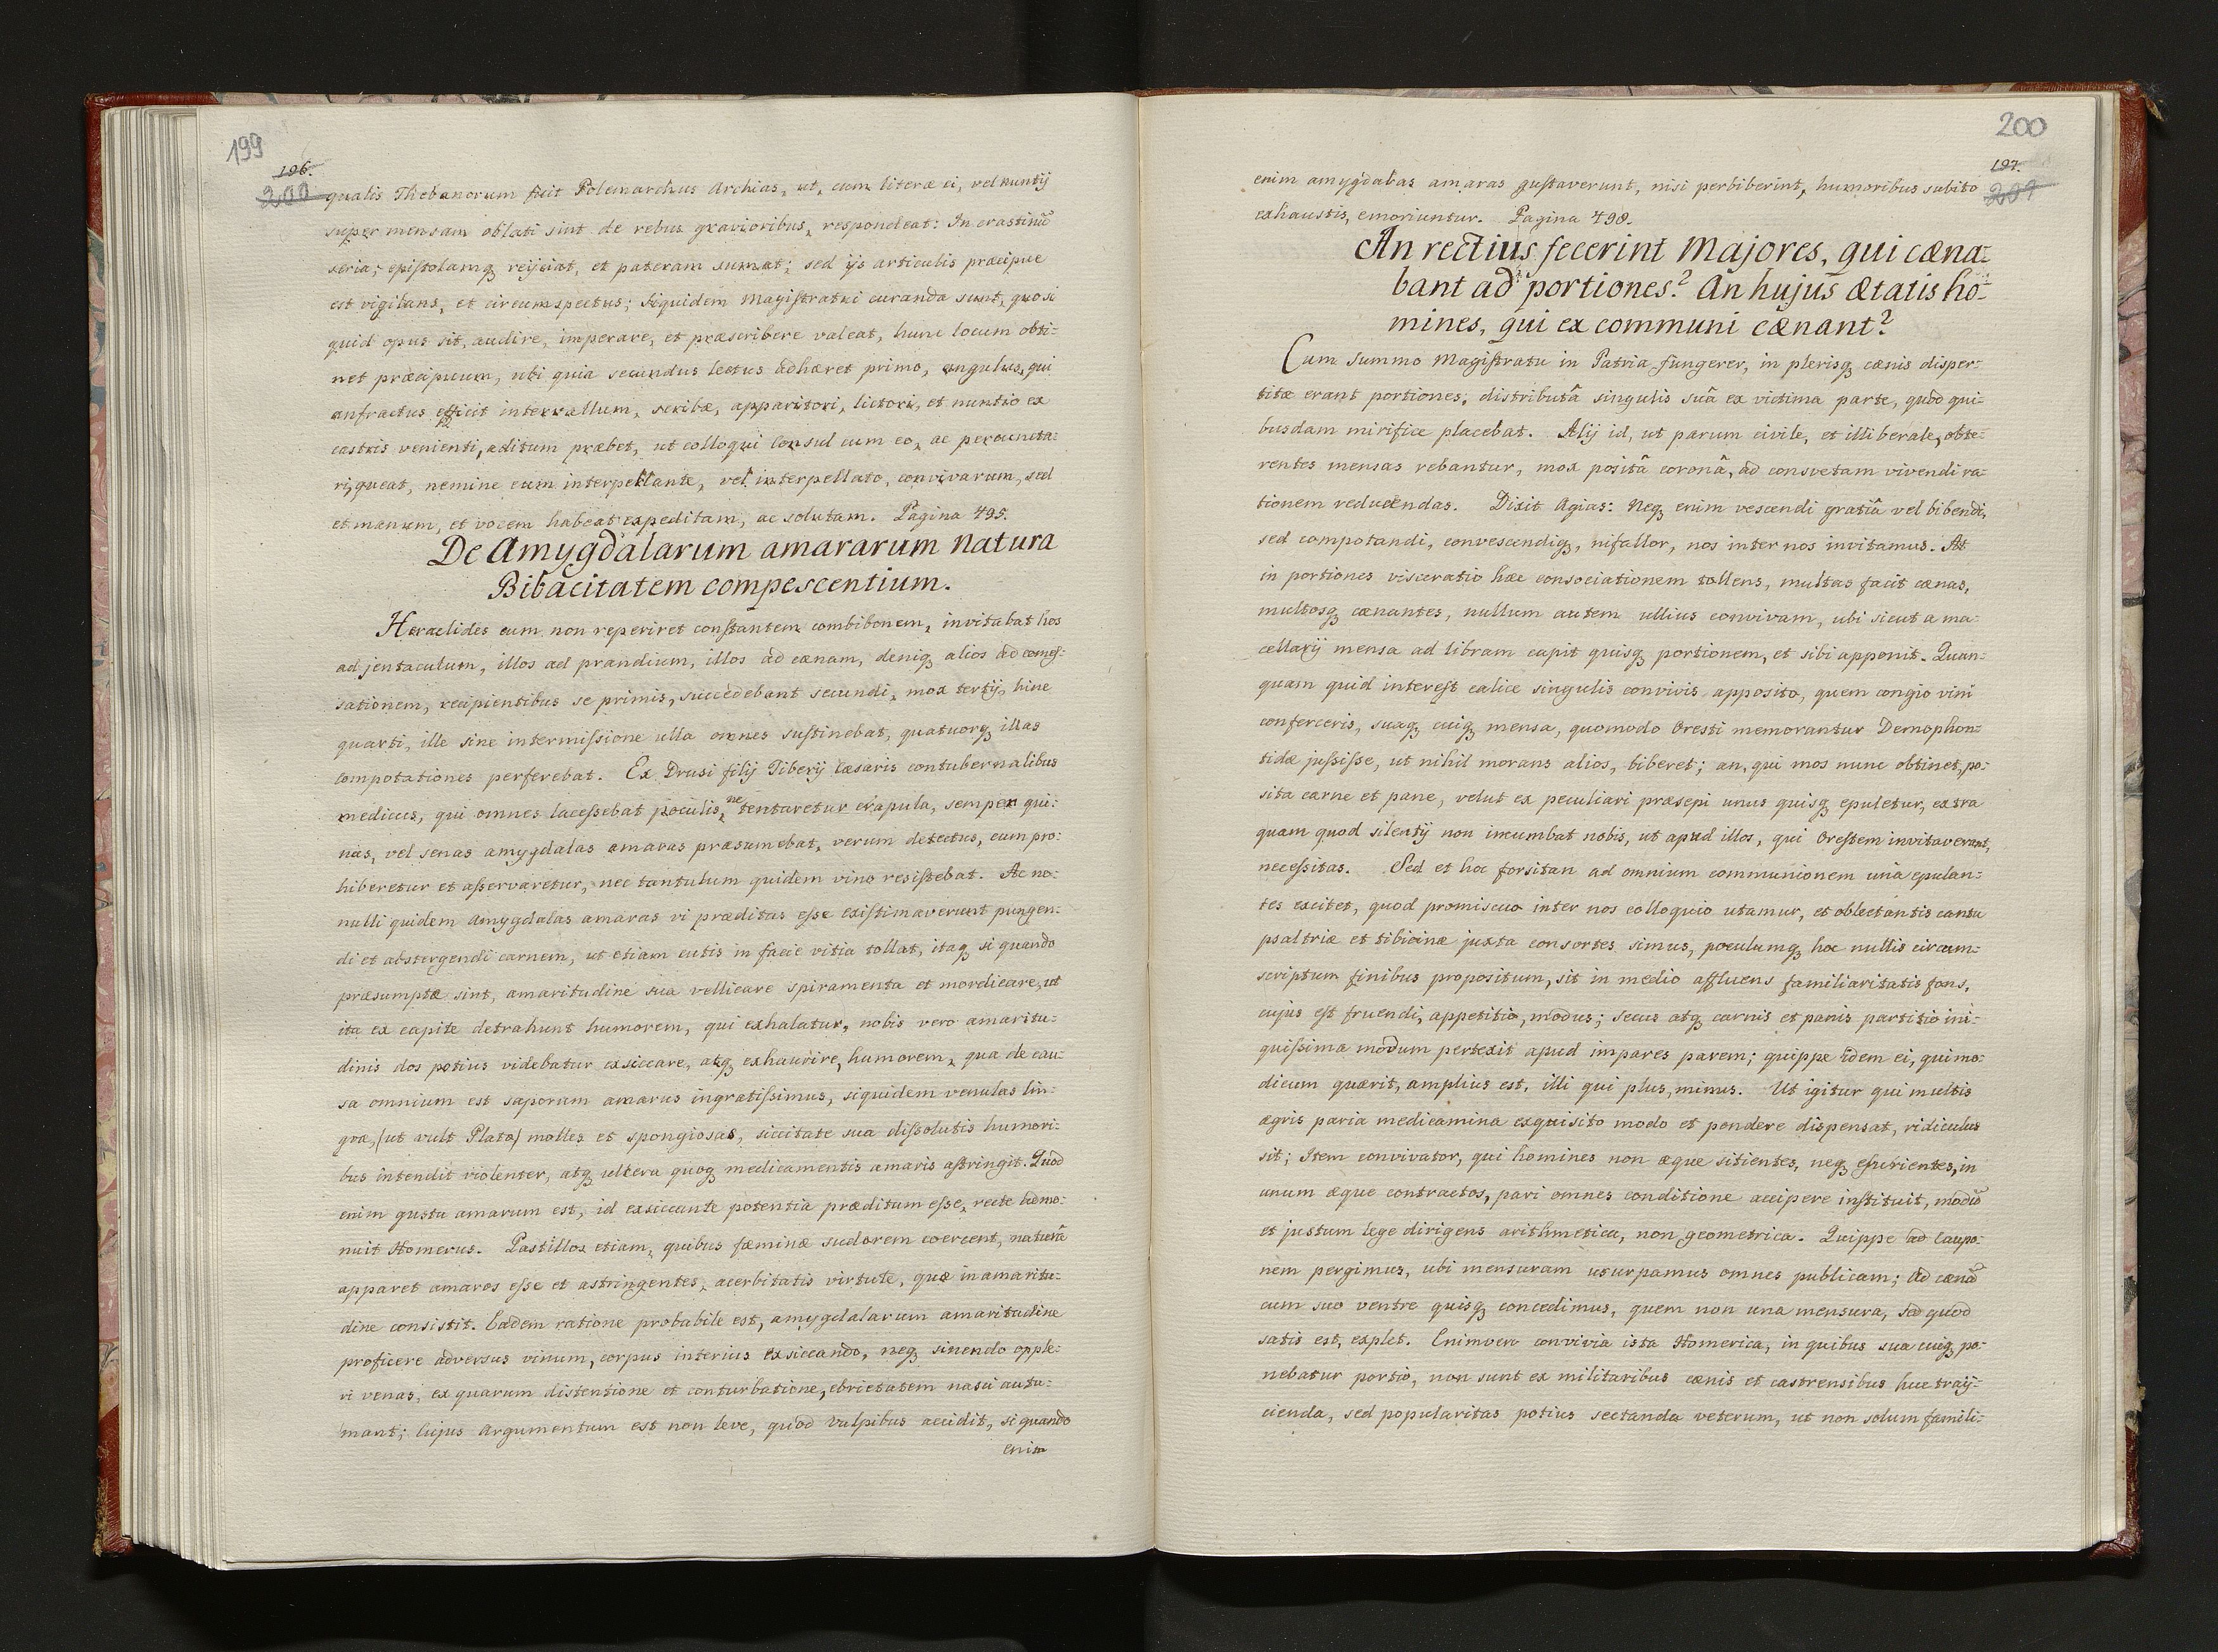 199
196.
200
qualis Thebanorum fuit Polemarchus Archias, ut, cum literæ ei, vel nuntij
super mensam oblati sint de rebus gravioribus, respondeat: In crastinũ
seria; epistolamq; reijciat, et pateram sumat; sed ijs articulis præcipue
est vigilans, et circumspectus; siquidem Magistratui curanda sunt, quo si
quid opus sit, audire, imperare, et præscribere valeat, hunc locum obti-
net præcipuum, ubi quia secundus lectus adhæret primo, angulus, qui
anfractus efficit intervallum, scribæ, apparitori, lictori, et nuntio ex
castris venienti, aditum præbet, ut colloqui Consul cum eo, ac percuncta-
ri, queat, nemine eum interpellante, vel interpellato, convivarum, sed
et manum, et vocem habeat expeditam, ac solutam. Pagina 495.
De Amygdalarum amararum natura
Bibacitatem compescentium.
Heraclides cum non reperiret constantem combibonem, invitabat hos
ad jentaculum, illos ad prandium, illos ad cænam, deniq; alios ad comes-
sationem, recipientibus se primis, succedebant secundi, mox tertij, hinc
quarti, ille sine intermissione ulla omnes sustinebat, quatuorq; illas
compotationes perferebat. Ex Drusi filij Tiberij Cæsaris contubernalibus
medicus, qui omnes lacessebat poculis, ne tentaretur crapula, semper qui-
nas, vel senas amygdalas amaras præsumebat, verum detectus, cum pro-
hiberetur et asservaretur, nec tantulum quidem vino resistebat. Ac no-
nulli quidem amygdalas amaras vi præditas esse existimaverunt pungen-
di et abstergendi carnem, ut etiam cutis in facie vitia tollat, itaq; si quando
præsumptæ sint, amaritudine sua vellicare spiramenta et mordicare, ut
ita ex capite detrahunt humorem, qui exhalatur, nobis vero amaritu-
dinis dos potius videbatur exsiccare, atq; exhaurire, humorem, qua de cau-
sa omnium est saporum amarus ingratissimus, siquidem venulas lin-
guæ, (ut vult Plato) molles et spongiosas, siccitate sua dissolutis humori-
bus intendit violenter, atq; ulcera quoq; medicamentis amaris astringit. Quod
enim gustu amarum est, id exsiccante potentia præditum esse, recte admo-
nuit Homerus. Pastillos etiam, quibus fæminæ sudorem coercent, naturâ
apparet amaros esse et astringentes, acerbitatis virtute, quæ in amaritu-
dine consistit. Eadem ratione probabile est, amygdalarum amaritudine
proficere adversus vinum, corpus interius exsiccando, neq; sinendo opple-
ri venas, ex quarum distentione et conturbatione, ebrietatem nasci autu-
mant; cujus argumentum est non leve, quod vulpibus accidit, si quando
enim
200
197.
201
enim amygdalas amaras gustaverunt, nisi perbiberint, humoribus subito
exhaustis, emoriuntur. Pagina 498.
An rectius fecerint Majores, qui cæna-
bant ad portiones? An hujus Ætatis ho-
mines, qui ex communi cænant?
Cum summo Magistratu in Patria fungerer, in plerisq; cænis disper-
titæ erant portiones, distributâ singulis suâ ex victima parte, quod qui-
busdam mirifice placebat. Alij id, ut parum civile, et illiberale, obte-
rentes mensas rebantur, mox positâ coronâ, ad consvetam vivendi ra-
tionem reducendas. Dixit Agias: Neq; enim vescendi gratiâ vel bibendi,
sed compotandi, convescendiq;, ni fallor, nos inter nos invitamus. At
in portiones visceratio hæc consociationem tollens, multas facit cænas,
multosq; cænantes, nullum autem ullius convivam, ubi sicut a ma-
cellarij mensa ad libram capit quisq; portionem, et sibi apponit. Quan-
quam quid interest calice singulis convivis apposito, quem congio vini
conferceris, suaq; cuiq; mensa, quomodo Oresti memorantur Demophon-
tidæ jussisse, ut nihil morans alios, biberet; an, qui mos nunc obtinet, po-
sita carne et pane, velut ex peculiari præsepi unus quisq; epuletur, extra
quam quod silentij non incumbat nobis, ut apud illos, qui Orestem invitaverant,
necessitas. Sed et hoc forsitan ad omnium communionem unà epulan-
tes excitet, quod promiscuo inter nos colloquio utamur, et oblectantis cantu
psaltriæ et tibicinæ juxta consortes simus, poculumq; hoc nullis circum-
scriptum finibus propositum, sit in medio affluens familiaritatis fons,
cujus est fruendi, appetitio, modus; secus atq; carnis et panis partitio ini-
quissima modum pertexit apud impares parem; quippe idem ei, qui mo-
dicum quærit, amplius est, illi qui plus, minus. Ut igitur qui multis
ægris paria medicamina exquisito modo et pondere dispensat, ridiculus
sit; Item convivator, qui homines non æque sitientes, neq; esurientes, in
unum æque contractos, pari omnes conditione accipere instituit, modũ
et justum lege dirigens arithmetica, non geometrica. Quippe ad Caupo-
nem pergimus, ubi mensuram usurpamus omnes publicam; ad cænã
cum suo ventre quisq; concedimus, quem non una mensura, sed quod
satis est, explet. Enimvero convivia ista Homerica, in quibus sua cuiq; po-
nebatur portio, non sunt ex militaribus cænis et castrensibus huc traij-
cienda, sed popularitas potius sectanda veterum, ut non solum famili-